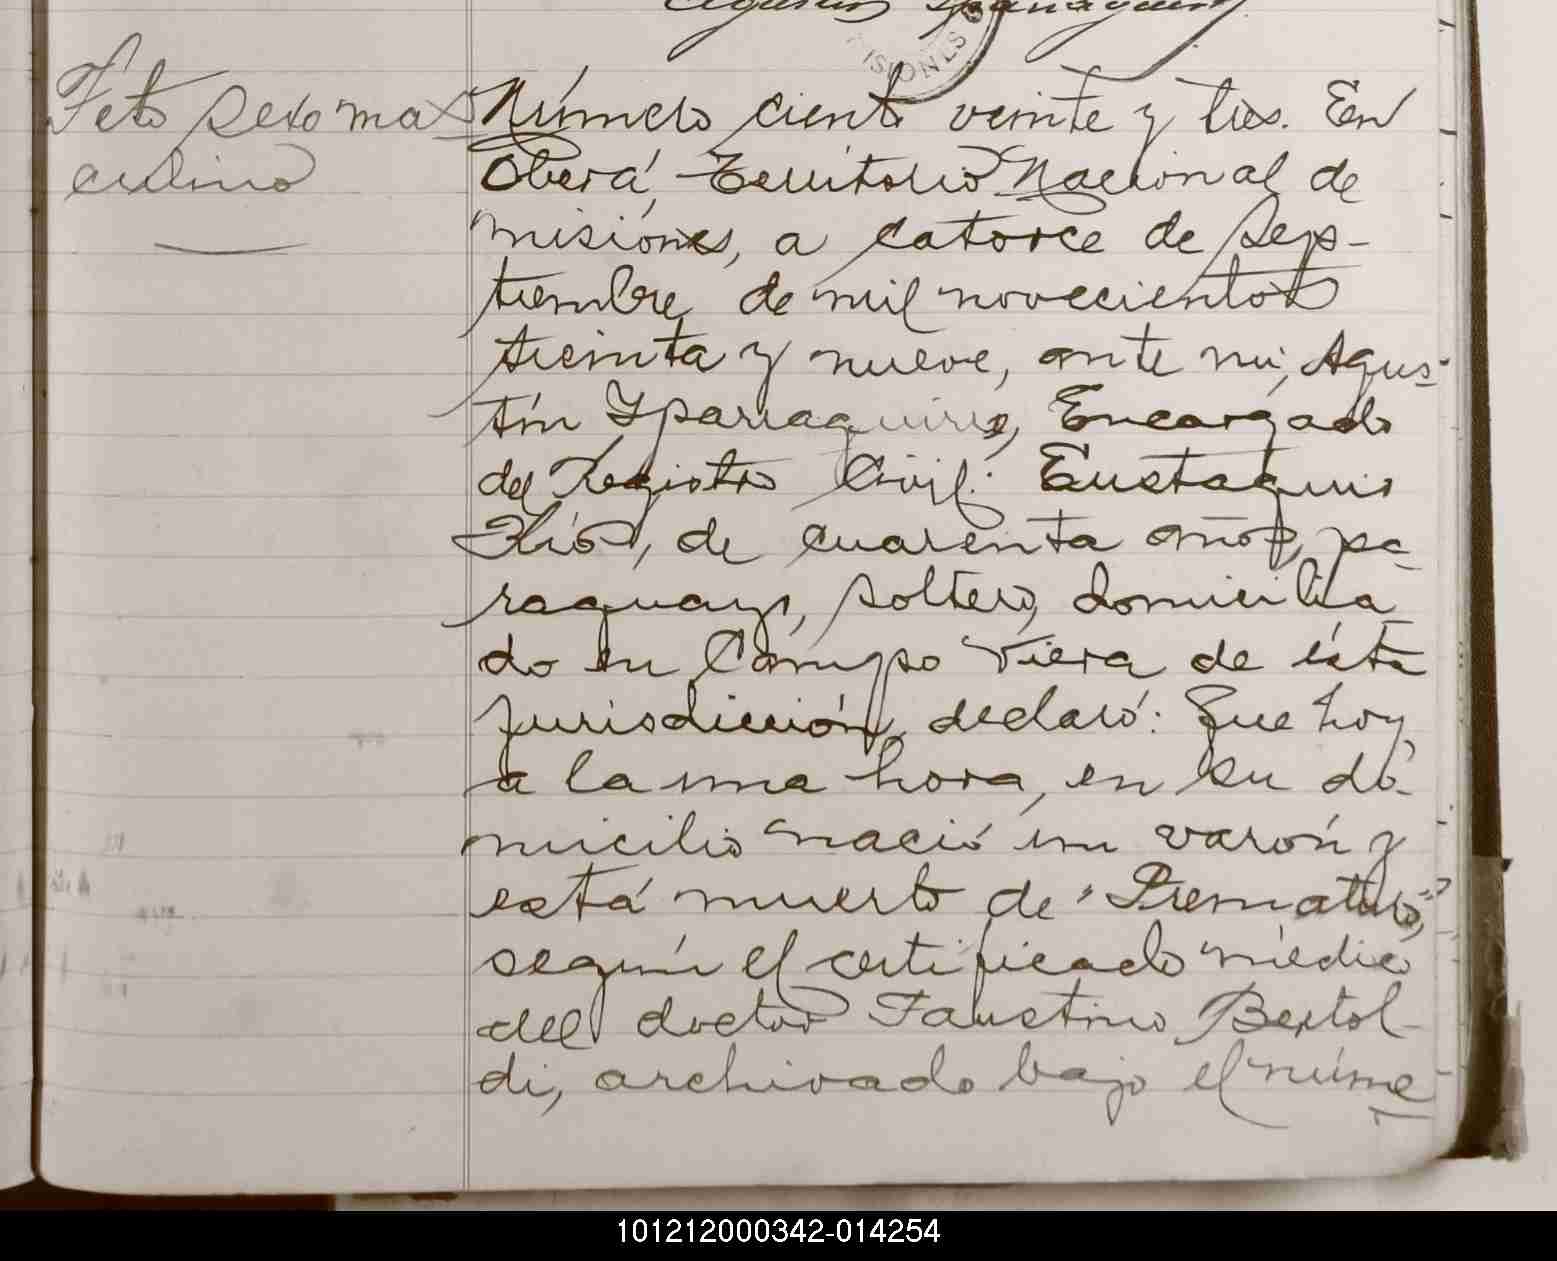 Agustín Yparraguirre
ISIONES
Feto sexo mas
culino
Número ciento veinte y tres. En
Oberá, Territorio Nacional de
misiones, a catorce de Sep-
tiembre de mil novecientos
treinta y nueve, ante mi, Agus-
tín Yparraguirre, Encargado
del Registro Civil: Eustaquio
Rió, de cuarenta años, pa-
raguayo, soltero, domicilia
do en Campo Viera de ésta
jurisdicción, declaró: Que hoy
a la una hora, en su do-
micilio nació un varón y
está muerto de "Prematuro",
según el certificado médico
del doctor Faustino Bertol-
di, archivado bajo el núme
101212000342-014254